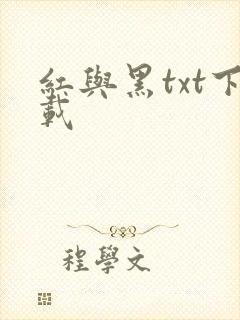 紅與黑txt下
載
程學文